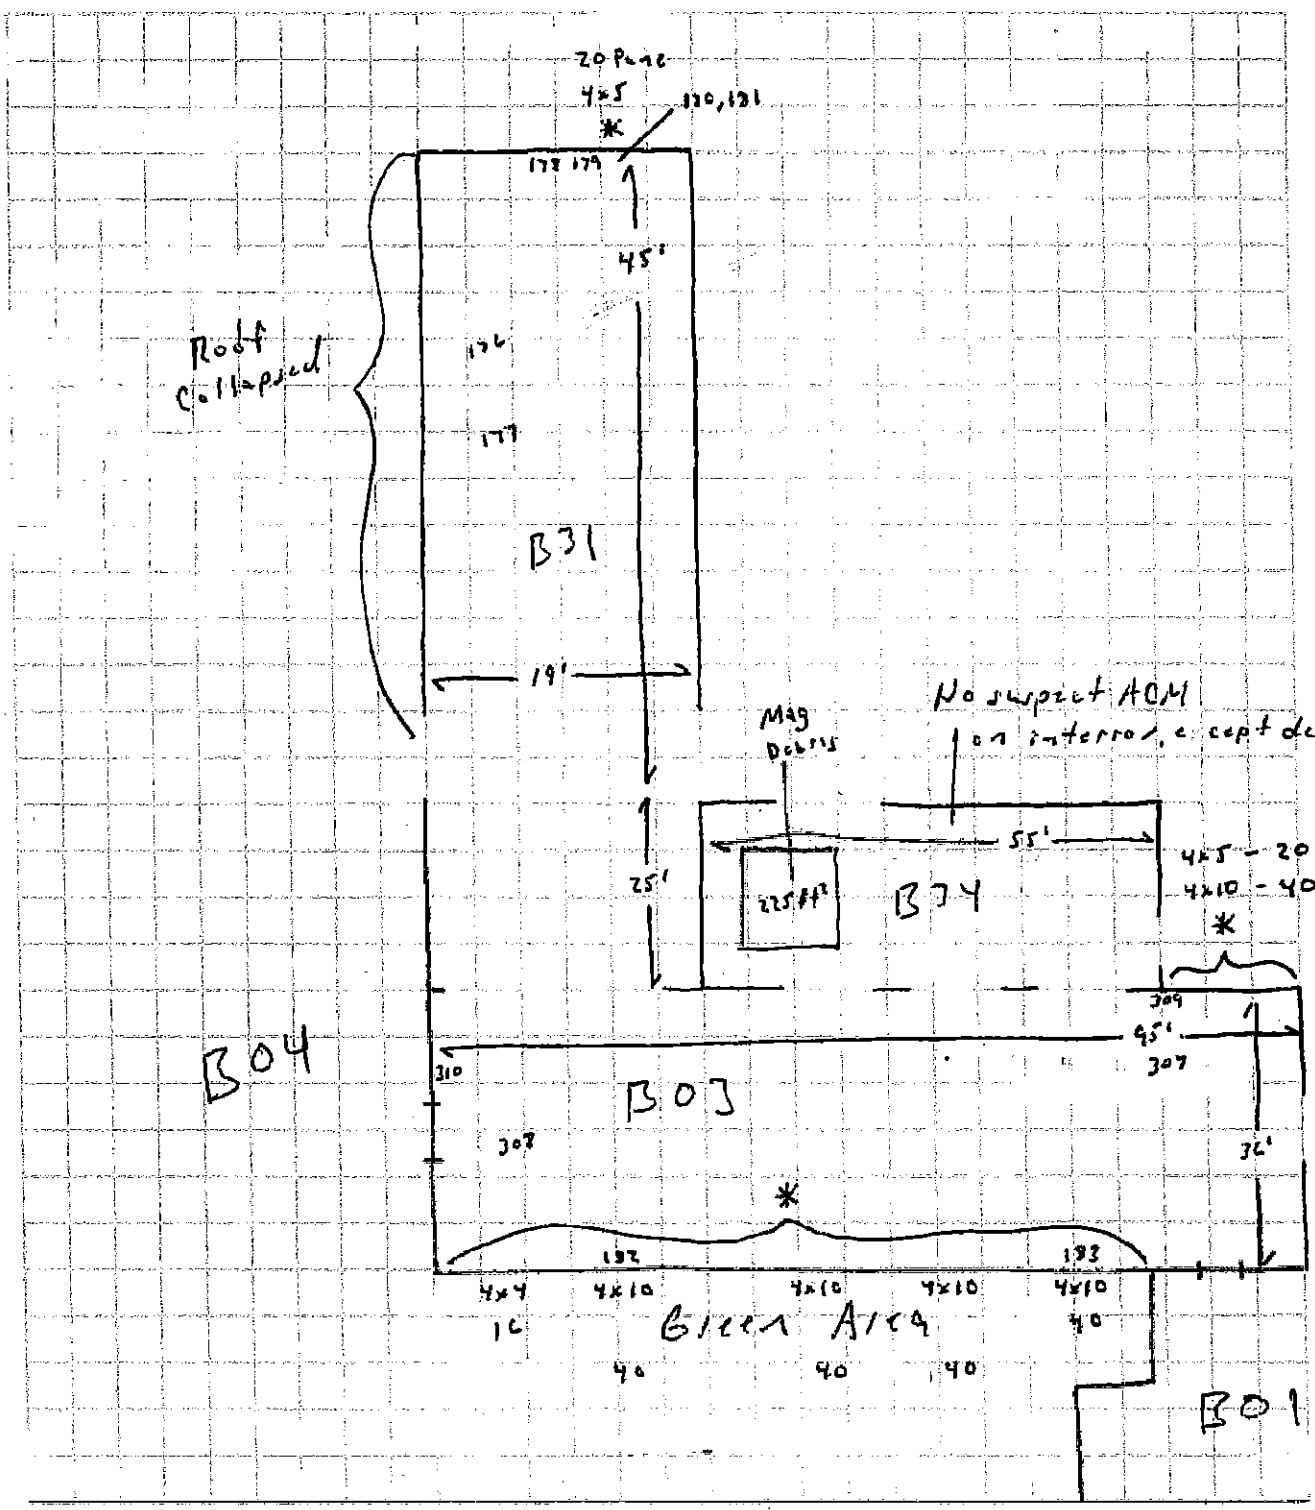 20 Pane
4x5
180, 181
*
178 179
45'
Roof
Collapsed
176
177
B31
19'
Mag
Debris
No suspect ACM
on interior, except de
55'
4x5 - 20
4x10 - 40
*
25'
225 ft²
B34
309
95'
307
B04
310
B03
308
36'
*
182
183
4x4
4x10
4x10
4x10
4x10
16
Green Area
40
40
40
40
B01